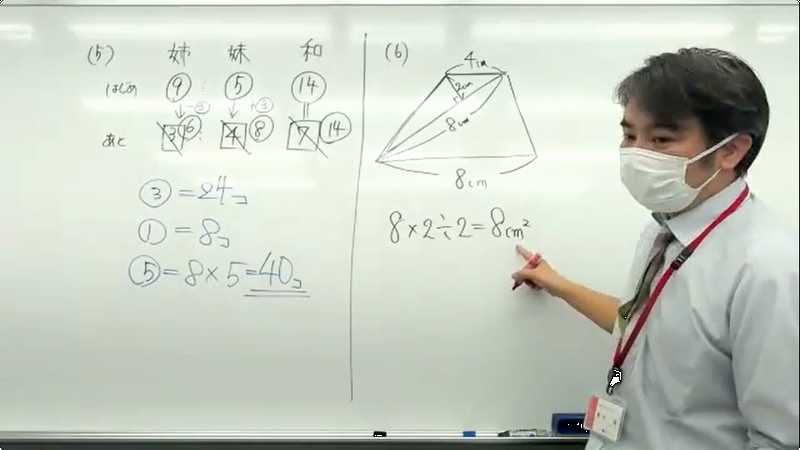 (5) 姉 妹 和
はじめ ⑨ : ⑤ ⑭
↓-③ ↓+③ ||
あと 3 ⑥ : 4 ⑧ 7 ⑭
③=24コ
①=8コ
⑤=8×5=40コ
(6)
4cm
2cm
8cm
8cm
8×2÷2=8cm²